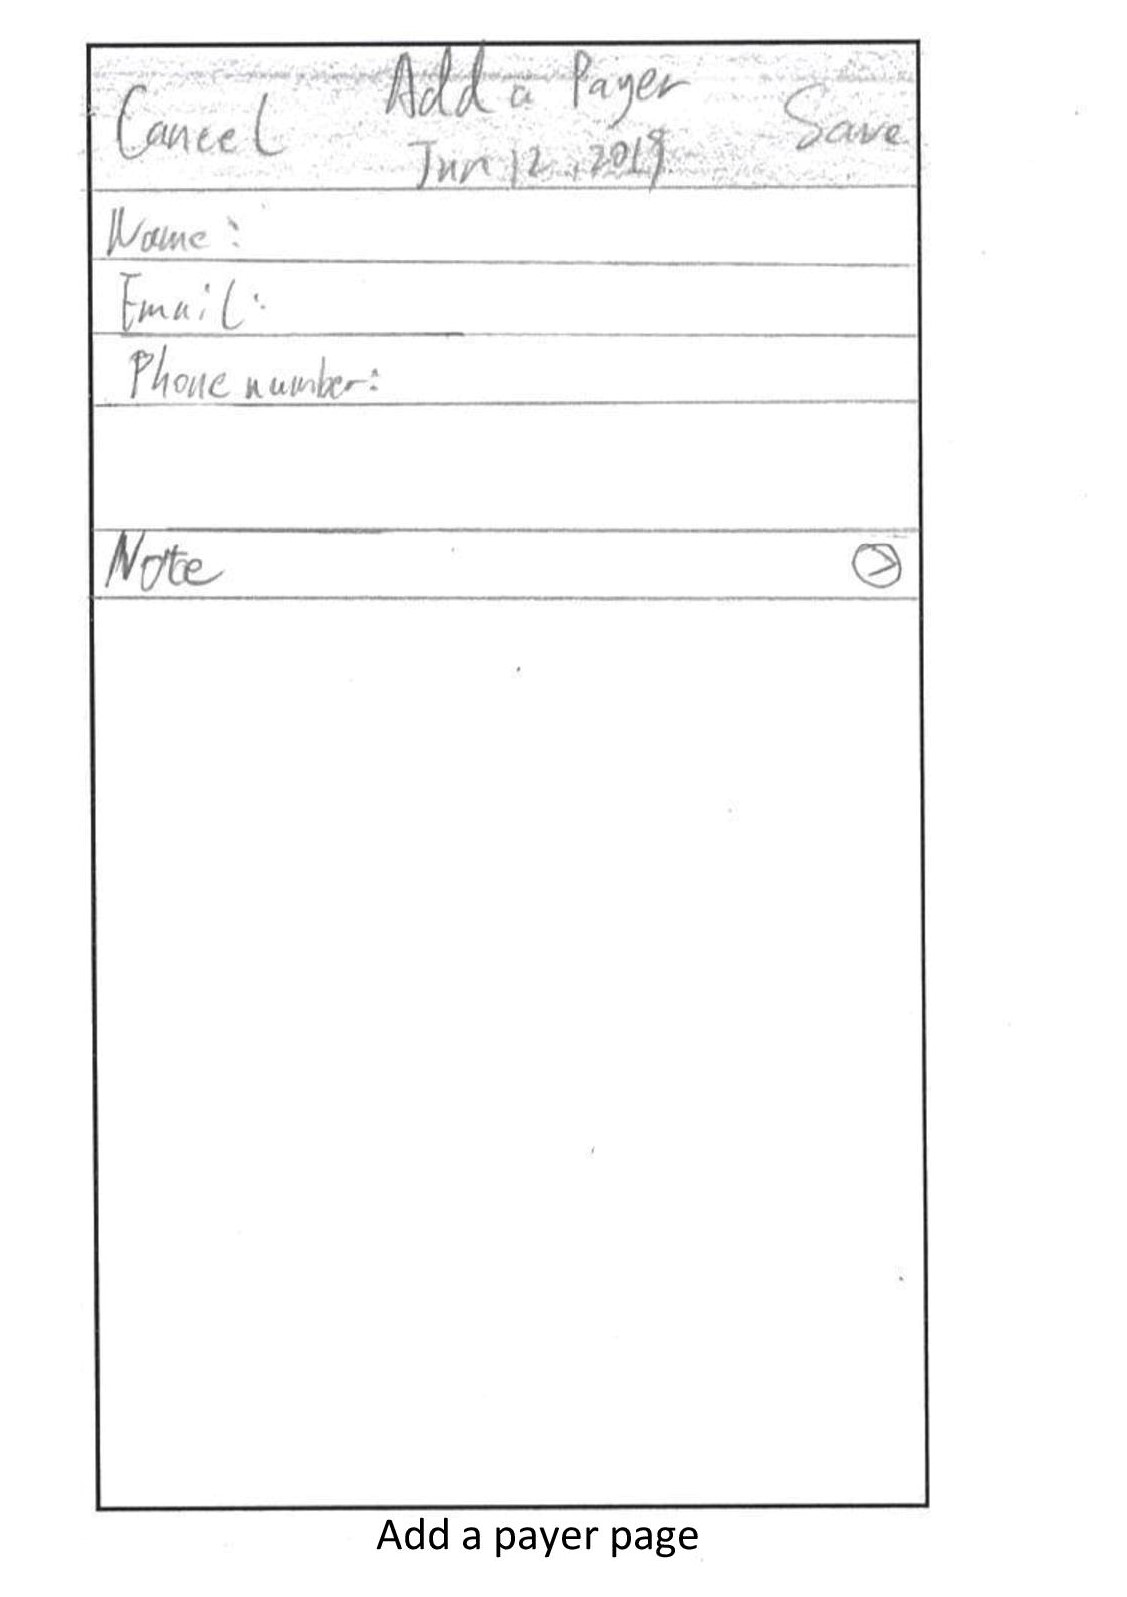 Cancel Add a Payer Save
Jun 12, 2019
Name:
Email:
Phone number:
Note
Add a payer page